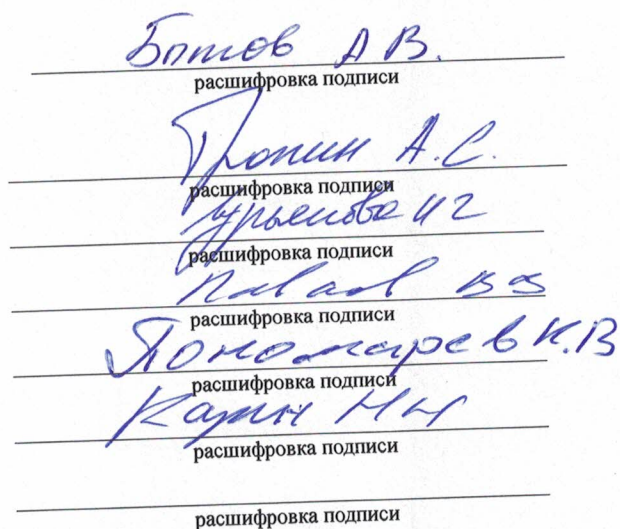 Ботов А В.
расшифровка подписи
Тропин А.С.
расшифровка подписи
Гурьенова И Г
расшифровка подписи
В В
расшифровка подписи
Пономарев К.В
расшифровка подписи
Н Н
расшифровка подписи
расшифровка подписи